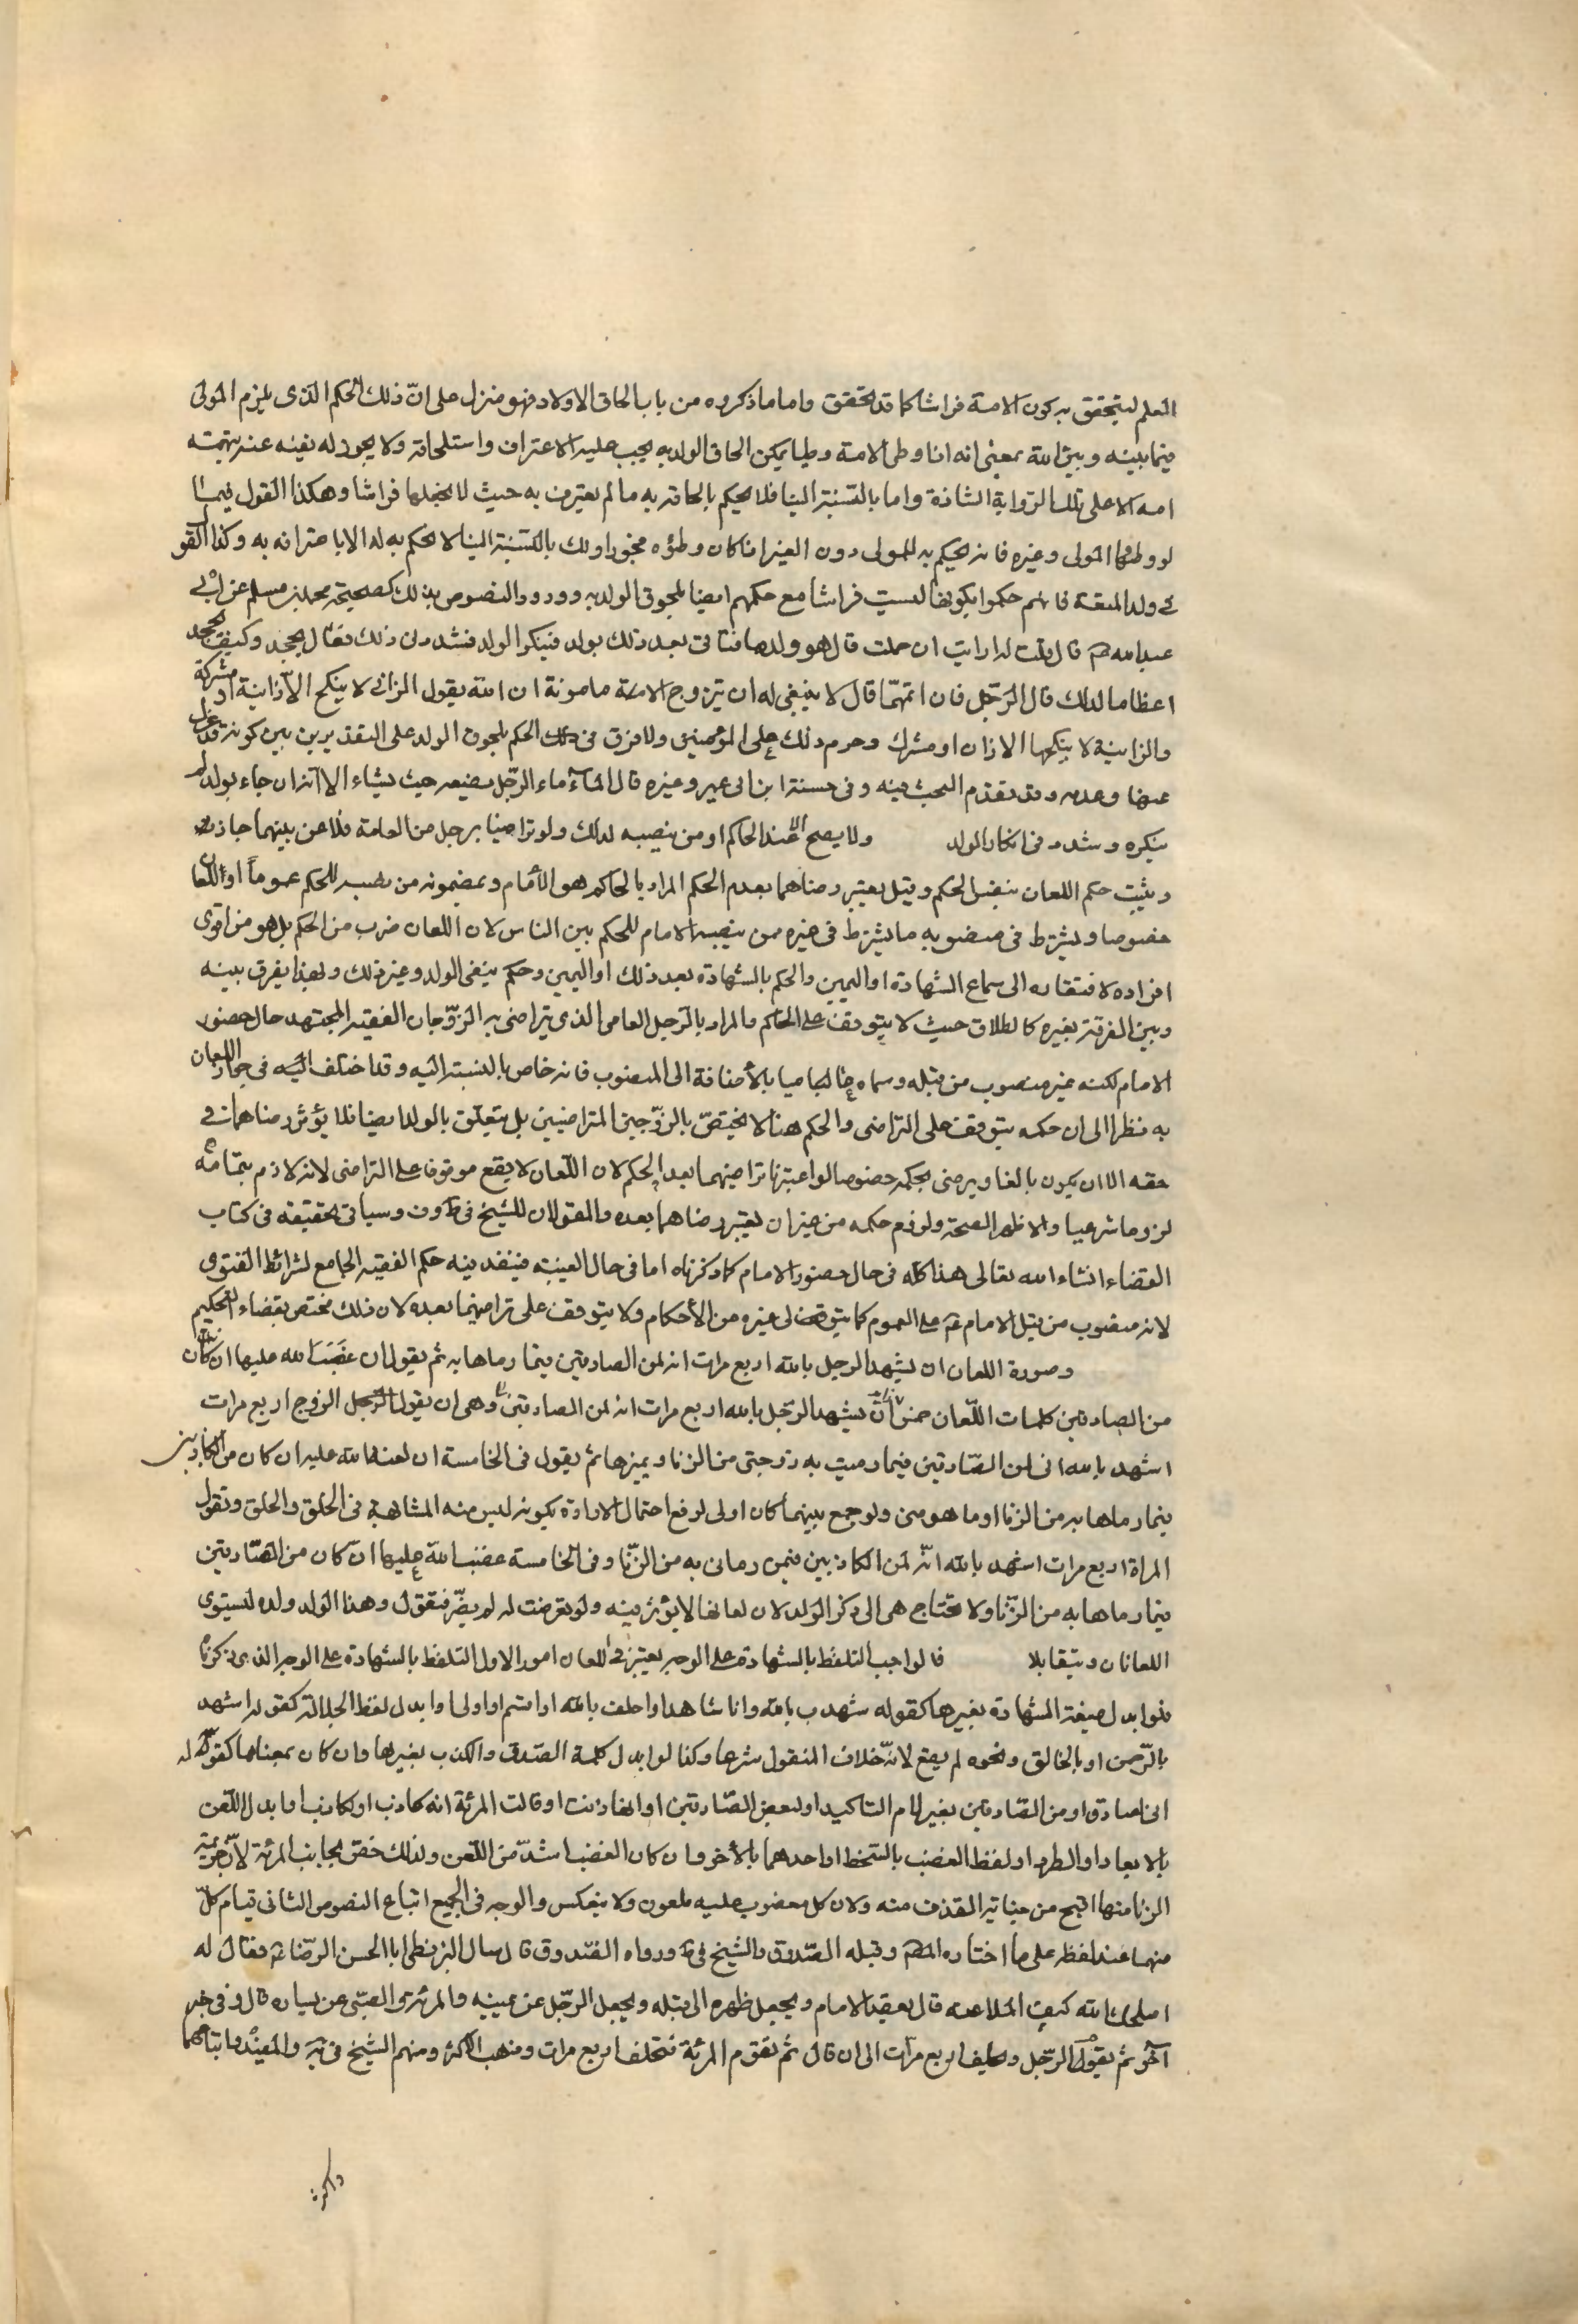 العلم ليتحقق به كون الامة فراشا كما قد تحقق واما ما ذكروه من باب الحاق الاولاد فهو منزل على انّ ذلك الحكم الذى يلزم المولى
فيما بينه وبين الله بمعنى انه اذا وطى الامة وطيا يمكن الحاق الولد به يجب عليه الاعتراف واستلحاقه ولا يجوز له نفيه عنه بتهمته
امه الا على تلك الرّواية الشاذة واما بالنّسبة الينا فلا يحكم بالحاقه به ما لم يعترف به حيث لا نجعلها فراشا وهكذا القول فيما
لو وطئها المولى وغيره فانه يحكم به للمولى دون الغير اذا كان وطؤه فجورا ولك بالنّسبة الينا لا نحكم به له الا باعترافه به وكذا القول
فى ولد المتعة فانهم حكموا بكونها ليست فراشا مع حكمهم ايضا بلحوق الولد به وورود النصوص بذلك كصحيحة محمد بن مسلم عن ابى
عبد الله ع قال قلت له ارايت ان حملت قال هو ولده فتاتى بعد ذلك بولد فينكر الولد فشدد فى ذلك فقال يجحد وكيف يجحد
اعظاما لذلك قال الرّجل فان اتهمّا قال لا ينبغى له ان يتزوج الامئة مامونة ان الله يقول الزانى لا ينكح الاّ زانية او مشركة
والزانية لا ينكحها الا زان او مشرك وحرم ذلك على المؤمنين ولا فرق فى ذلك الحكم بلحوق الولد على التقديرين بين كونه قد عزل
عنها وعدمه وقد تقدّم البحث فيه وفى حسنة ابن ابى عمير وغيره قال المآء ماء الرّجل يضيعه حيث يشاء الا انه ان جاء بولد لم
ينكره وشدد فى انكار الولد ولا يصح الا عند الحاكم او من ينصبه لذلك ولو تراضيا برجل من العامة فلاعن بينهما جاز
ويثبت حكم اللعان بنفس الحكم وقيل يعتبر رضاهما بعد الحكم المراد بالحاكم هو الامام وبمضمونه من نصبه للحكم عموماً او اللعان
خصوصا ويشترط فى منصوبه ما يشترط فى غيره ممن ينصبه الامام للحكم بين الناس لان اللعان ضرب من الحكم بل هو من اقوى
افراده لافتقاره الى سماع الشهادة او اليمين والحكم بالشهادة بعد ذلك او اليمين وحكم بنفى الولد وغير ذلك وبهذا يفرق بينه
وبين الفرقة بغيره كالطلاق حيث لا يتوقف على الحاكم والمراد بالرّجل العامى الذى يتراضى به الزّوجان الفقيه المجتهد حال حضور
الامام لكنه غير منصوب من قبله وسماه عاميا بالأضافة الى المنصوب فانه خاص بالنسبة اليه وقد اختلف فى جواز اللعان
به نظرا الى ان حكمه يتوقف على التراضى والحكم هنا لا يختصّ بالزّوجين المتراضيين بل يتعلق بالولد ايضا فلا يؤثر رضاهما فى
حقه الا ان يكون بالغا ويرضى بحكمه خصوصا لو اعتبرنا تراضيهما بعد الحكم لان اللّعان لا يقع موقوفا على التراضى لانه لازم بتمامه
لزوما شرعيا والاظهر الصحة ولزوم حكمه من غير ان يعتبر رضاهما بعده والقولان للشيخ فى ط وف وسياتى تحقيقه فى كتاب
القضاء انشاء الله تعالى هذا كله فى حال حضور الامام كما ذكرناه اما فى حال الغيبة فينفذ فيه حكم الفقيه الجامع لشرائط الفتوى
لانه منصوب من قبل الامام ع على العموم كما يتوقف لى غيره من الأحكام ولا يتوقف على تراضيهما بعده لان ذلك مختص بقضاء التحكيم
وصورة اللعان ان يشهد الرجل بالله اربع مرات انه لمن الصادقين فيما رماها به ثم يقول ان غضب الله عليها ان كان
من الصادقين كلمات اللّعان خمس ان يشهد الرّجل بالله اربع مرات انه لمن الصادقين وهى ان يقول الرّجل الزوج اربع مرات
اشهد بالله انى لمن الصّادقين فيما رميت به زوجتى من الزنا ويميزها ثم يقول فى الخامسة ان لعنة الله عليه ان كان من الكاذبين
فيما رماها به من الزّنا او ما هو منى ولو جمع بينهما كان اولى لرفع احتمال الارادة بكونه ليس منه المشابهة فى الخلق والخلق وتقول
المراة اربع مرات اشهد بالله انّه لمن الكاذبين فيمن رمانى به من الزّنا وفى الخامسة غضب الله عليها انّ كان من الصّادقين
فيما رماها به من الزّنا ولا تحتاج هى الى ذكر الولد لان لعانها لا يؤثر فيه ولو تعرضت له لم يضرّ فتقول وهذا الولد ولده ليستوى
اللعانان ويتقابلا فالواجب التلفظ بالشهادة على الوجه يعتبر فى اللعان امور الاول التلفظ بالشهادة على الوجه الذى ذكرنا
فلو ابدل صيغة الشهادة بغيرها كقوله شهدت بالله وانا شاهد او احلف بالله او اقسم او اولى او ابدل لفظ الجلالة كقوله اشهد
بالرّحمن او بالخالق ونحوه لم يقع لانّه خلاف المنقول شرعا وكذا لو ابدل كلمة الصّدق والكذب بغيرها وان كان بمعناها كقوله
انى لصادق او من الصّادقين بغير لام التاكيد او لبعض الصّادقين او انها زنت او قالت المرئة انه كاذب او لكاذب او ابدل اللّعن
بالابعاد او الطرد او لفظ الغضب بالسّخط او احدهما بالأخر وان كان الغضب اشدّ من اللّعن ولذلك خصّ بجانب المرئة لانّ جريمة
الزنا منها اقبح من جناية القذف منه ولان كل مغضوب عليه ملعون ولا ينعكس والوجه فى الجميع اتباع النصوص الثانى قيام كلّ
منهما عند لفظه على ما اختاره المص وقبله الصّدوق والشيخ فى ط ورواه الصّدوق قال سال البزنطى ابا الحسن الرّضا ع فقال له
اصلحك الله كيف الملاعنة قال يقعد الامام ويجعل ظهره الى قبله ويجعل الرّجل عن يمينه والمرئة والصّبى عن يساره قال وفى خبر
آخر ثم يقول الرّجل وحلف اربع مرات الى ان قال ثم تقوم المرئة فتحلف اربع مرات وذهب الاكثر ومنهم الشيخ فى يه والمفيد واتباعهما